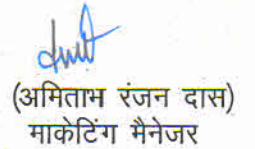 (अमिताभ रंजन दास)
मार्केटिंग मैनेजर